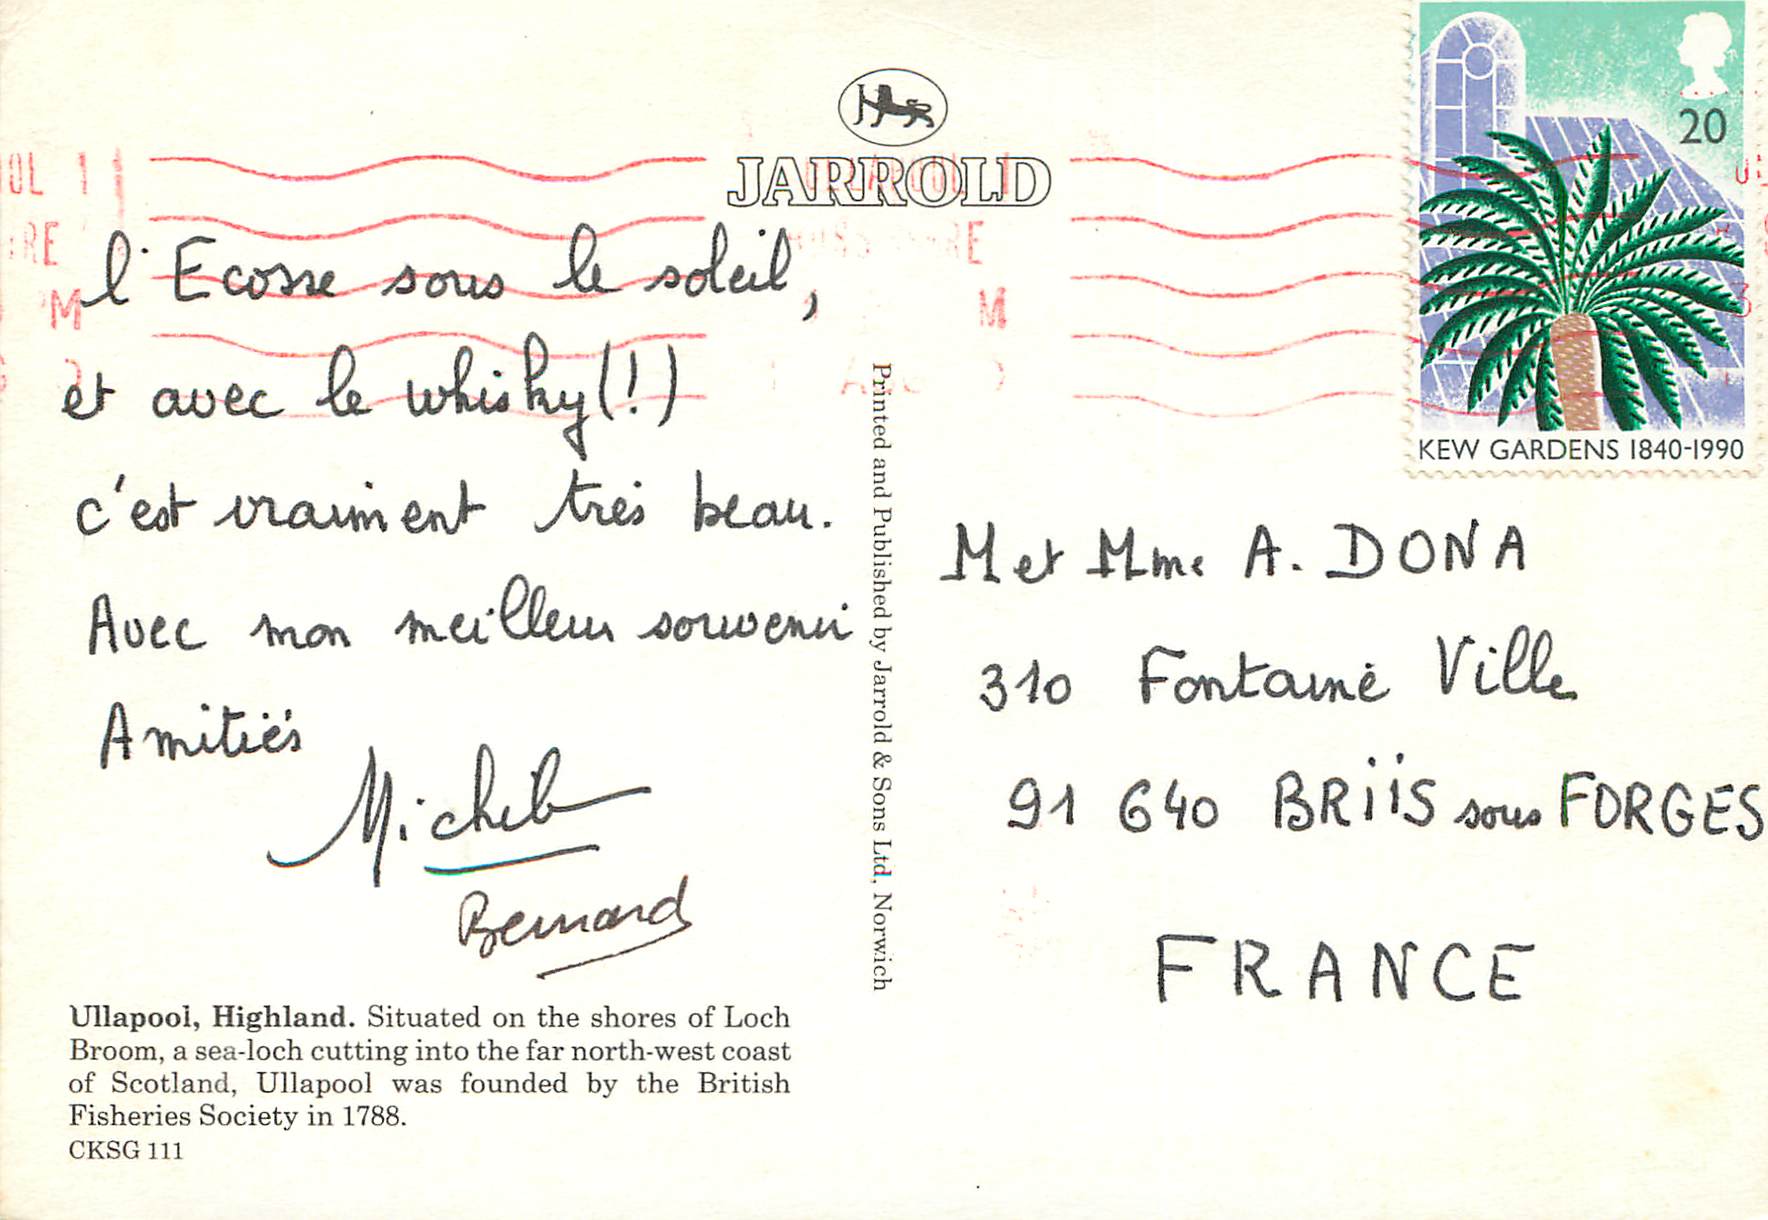 JARROLD
l'Ecosse sous le soleil,
et avec le whisky(!)
c'est vraiment très beau.
Avec mon meilleur souvenir
Amitiés
Bernard
Ullapool, Highland. Situated on the shores of Loch
Broom, a sea-loch cutting into the far north-west coast
of Scotland, Ullapool was founded by the British
Fisheries Society in 1788.
CKSG 111
Printed and Published by Jarrold & Sons Ltd, Norwich
20
KEW GARDENS 1840-1990
M et Mme A. DONA
310 Fontaine Ville
91 640 BRiiS sous FORGES
FRANCE